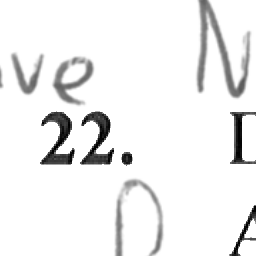 ve N
22. D
D A